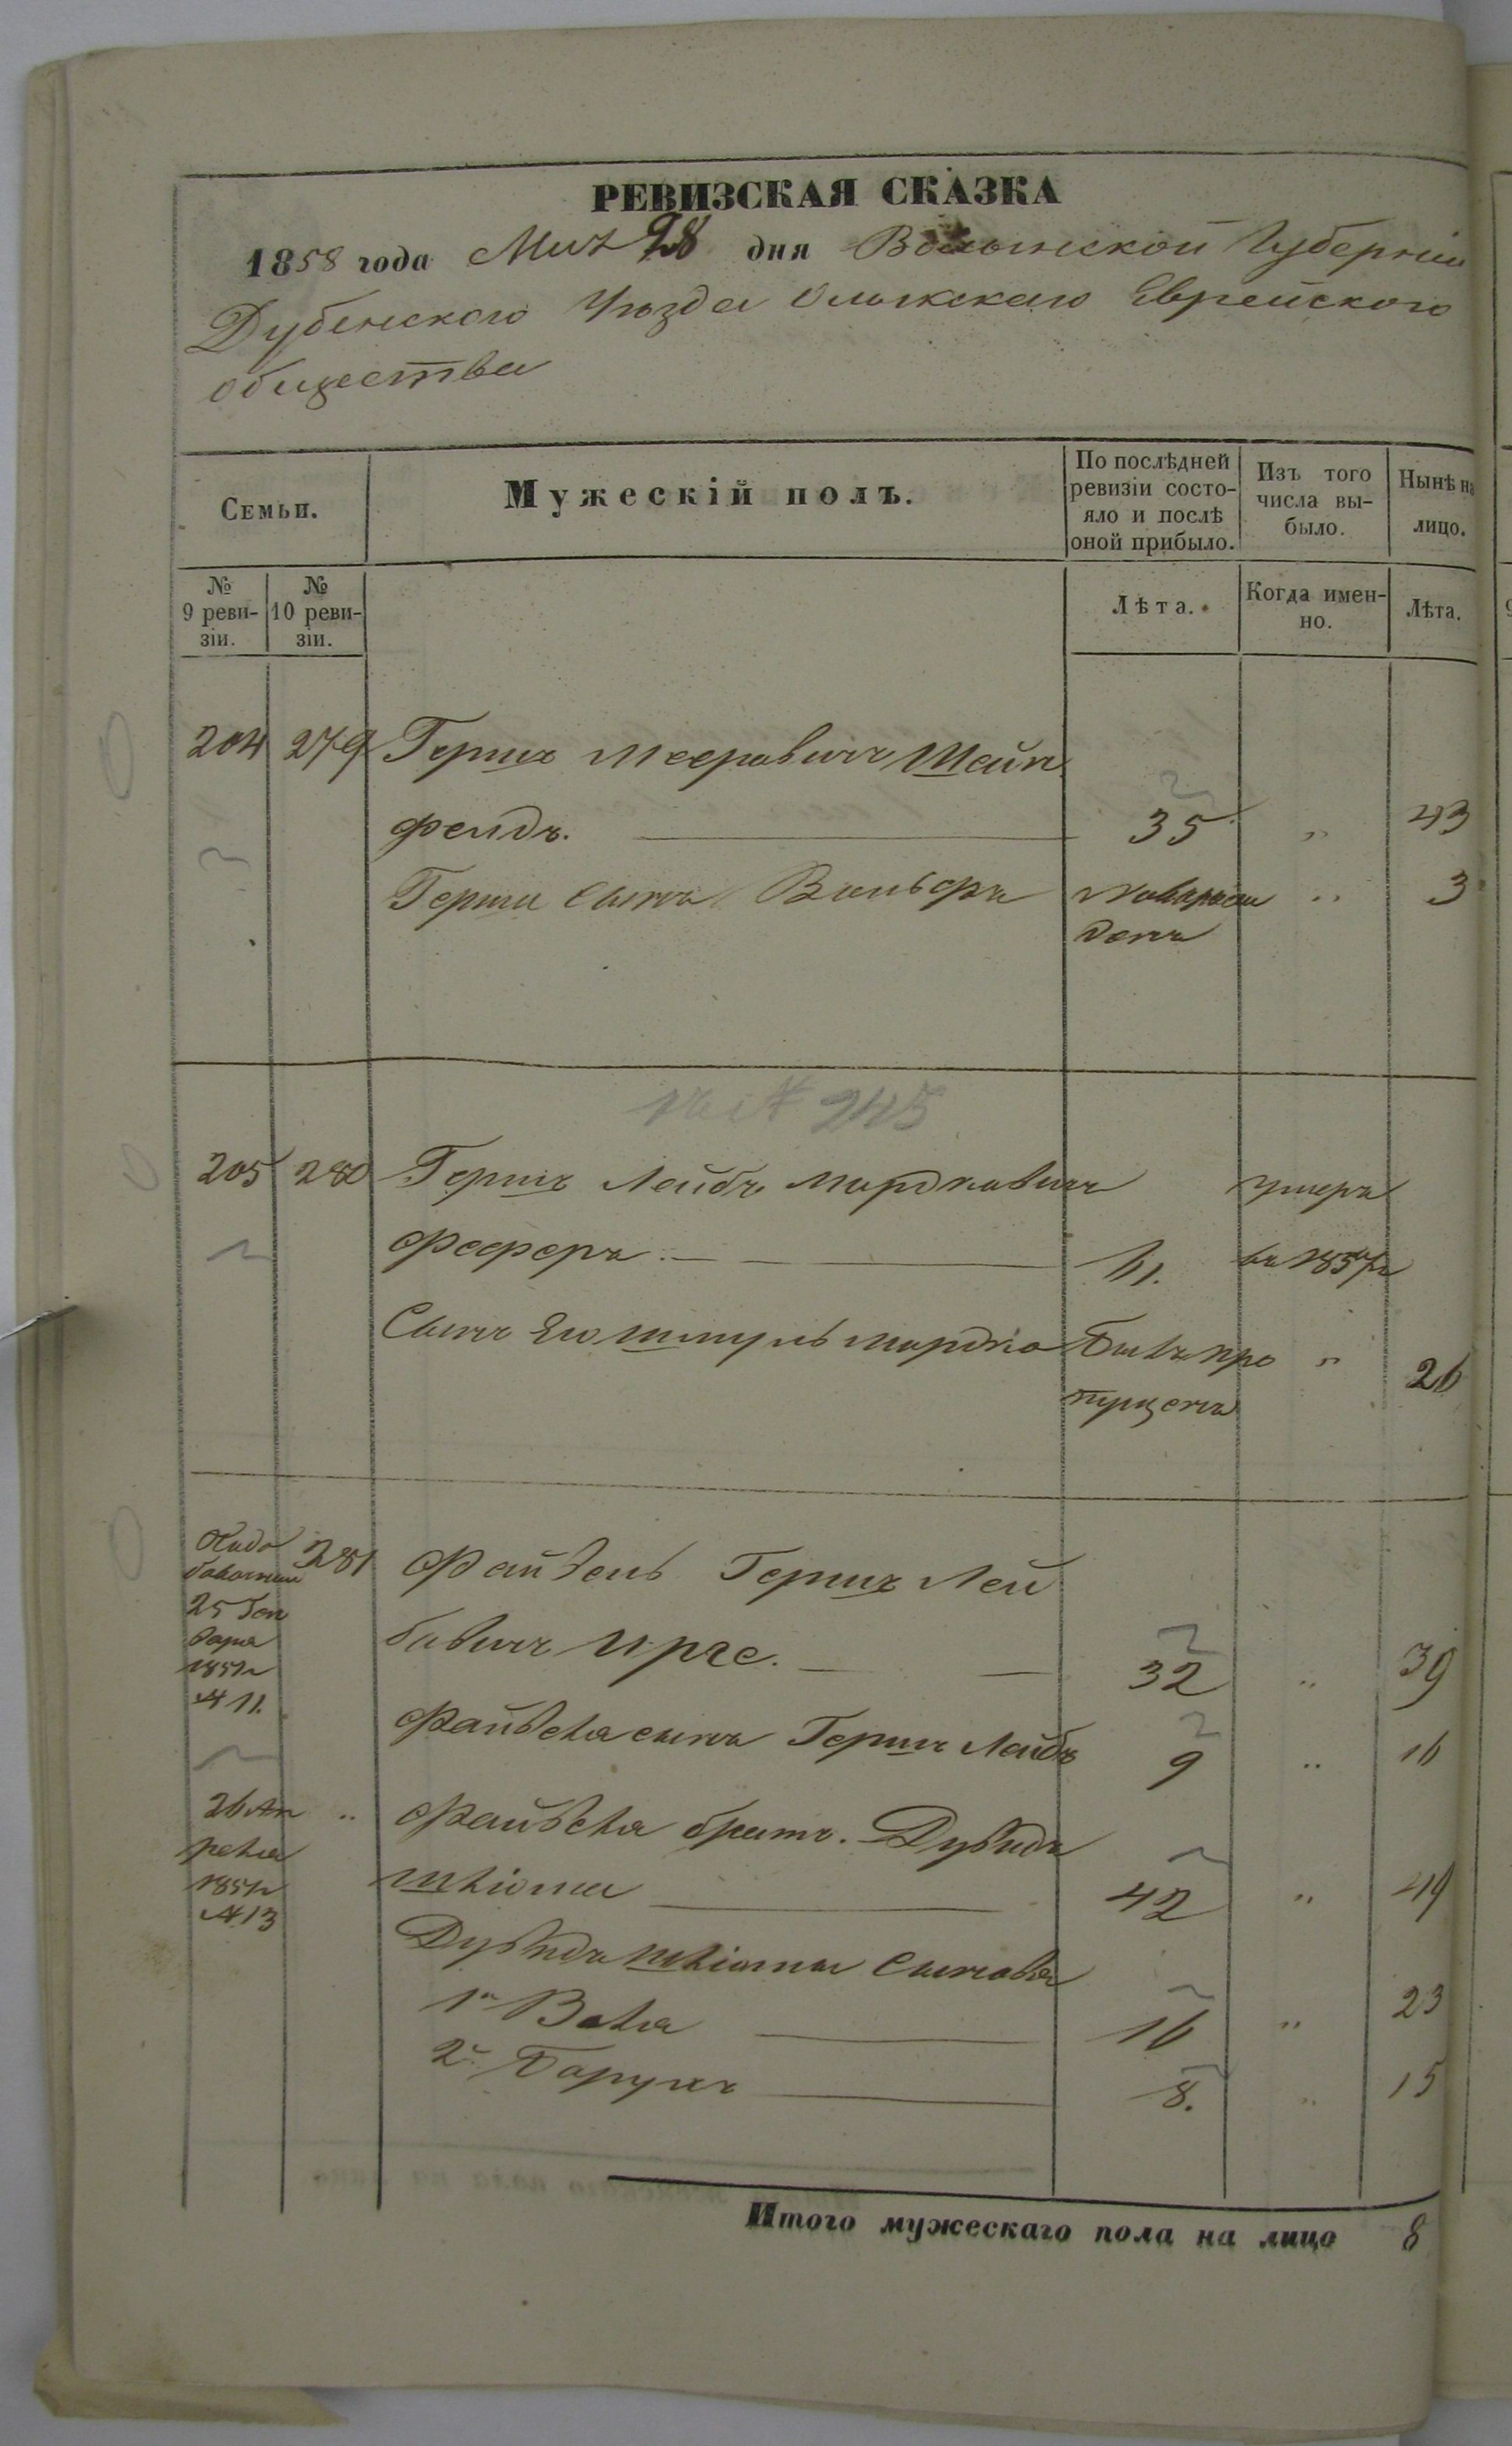 РЕВИЗСКАЯ СКАЗКА
1858 года Мая 28 дня Волынской Губерніи
Дубенского Уѣзда Олыкскаго Еврейского
общества
Семьи.
Мужескій полъ.
По послѣдней ревизіи состо-яло и послѣ оной прибыло.
Изъ того числа вы-было.
Нынѣ на лицо.
№ 9 реви-зіи.
№ 10 реви-зіи.
Лѣта.
Когда имен-но.
Лѣта.
204 279 Гершъ Мееровичъ Шейн
фельдъ. 35 „ 43
Герша сынъ Вольфъ новорож „ 3
денъ
№ 245
205 280 Гершъ Лейбъ Мордковичъ умеръ
Феферъ 61. въ 1857г
Сынъ Его Шмуль Мордко Былъ про „ 26
пущенъ
281 Файвель Гершъ Лей
25 Ген
бовичъ Ирге. 32 „ 39
варя
1851г
№ 11.
Файвеля сынъ Гершъ Лейбъ 9 „ 16
26 Ап „ Файвеля братъ. Дувидъ
реля
1851г Шлiома 42 „ 49
№ 13
Дувидъ Шлiомы сыновья
1й Веля 16 „ 23
2й Борухъ 8. „ 15
Итого мужескаго пола на лицо 8